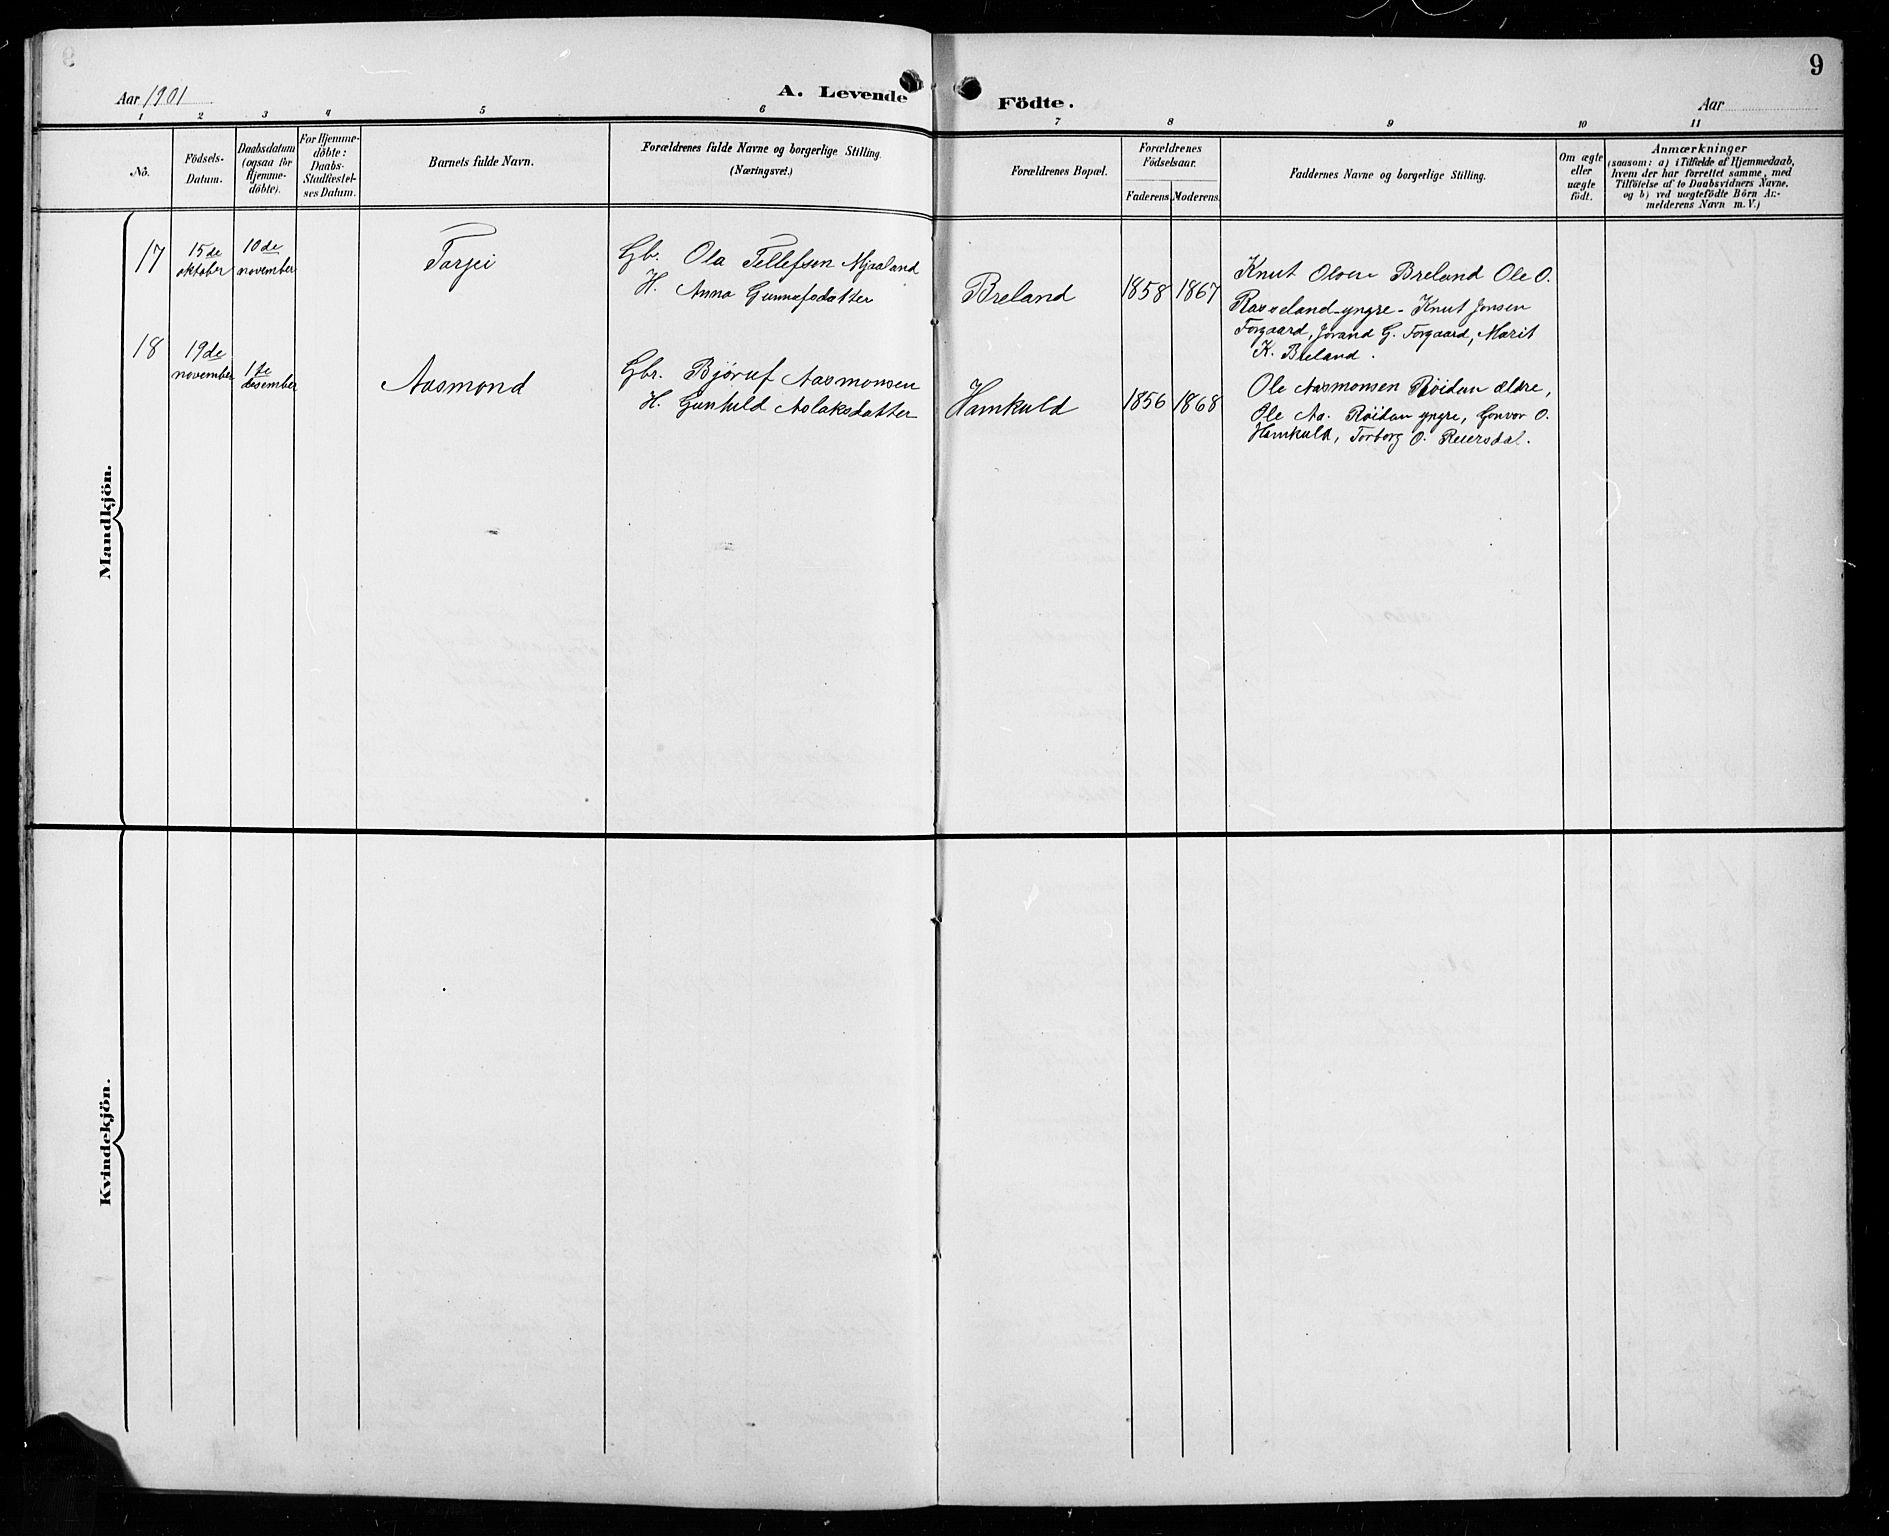 9
Aar 1901
A. Levende Födte.
Aar
1 2 3 4 5 6 7 8 9 10 11
No.
Födsels-
Datum.
Daabsdatum
(ogsaa for
Hjemme-
döbte).
For Hjemme-
döbte:
Daabs-
Stadfæstel-
ses Datum.
Barnets fulde Navn.
Forældrenes fulde Navne og borgerlige Stilling.
(Næringsvei.)
Forældrenes Bopæl.
Forældrenes
Födselsaar.
Faderens
Moderens.
Faddernes Navne og borgerlige Stilling.
Om ægte
eller
uægte
födt.
Anmærkninger
(saasom: a) i Tilfælde af Hjemmedaab,
hvem der har forrettet samme, med
Tilföielse af to Daabsvidners Navne.
og b) ved uægtefödte Börn An-
melderens Navn m. V.)
Mandkjön.
17
15de
oktober
10de
november
Torjei
Gb. Ola Tellefsen Mjaaland
H. Anna Gunnufsdatter
Breland
1858
1867
Knut Olsen Breland Ole O.
Rosseland yngre - Knut Jonsen
Forgaard, Jorand G. Forgaard, Marit
K. Breland.
18
19de
november
1ste
desember
Aasmond
Gbr. Bjøruf Aasmonsen
H. Gunhild Aslaksdatter
Hamkuld
1856
1868
Ole Aasmonsen Røidan ældre,
Ole Aa. Røidan yngre, Gonvor O.
Hamkuld, Torborg O. Reiersdal.
Kvindekjön.